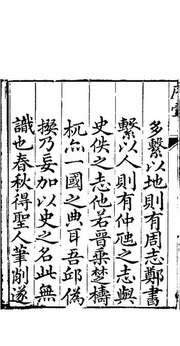 多繫以地則有周志鄭書
繫以人則有仲虺之志與
史佚之志他若晉乘楚檮
杌亦一國之典耳吾邱僞
撰乃妄加以史之名此無
識也春秋得聖人筆削遂